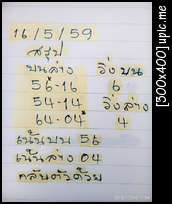 16/5/59
สรุป
บนล่าง วิ่งบน
56-16 6
54-14 วิ่งล่าง
64-04 4
เน้นบน 56
เน้นล่าง 04
กลับตัวด้วย
[300x400] upic.me